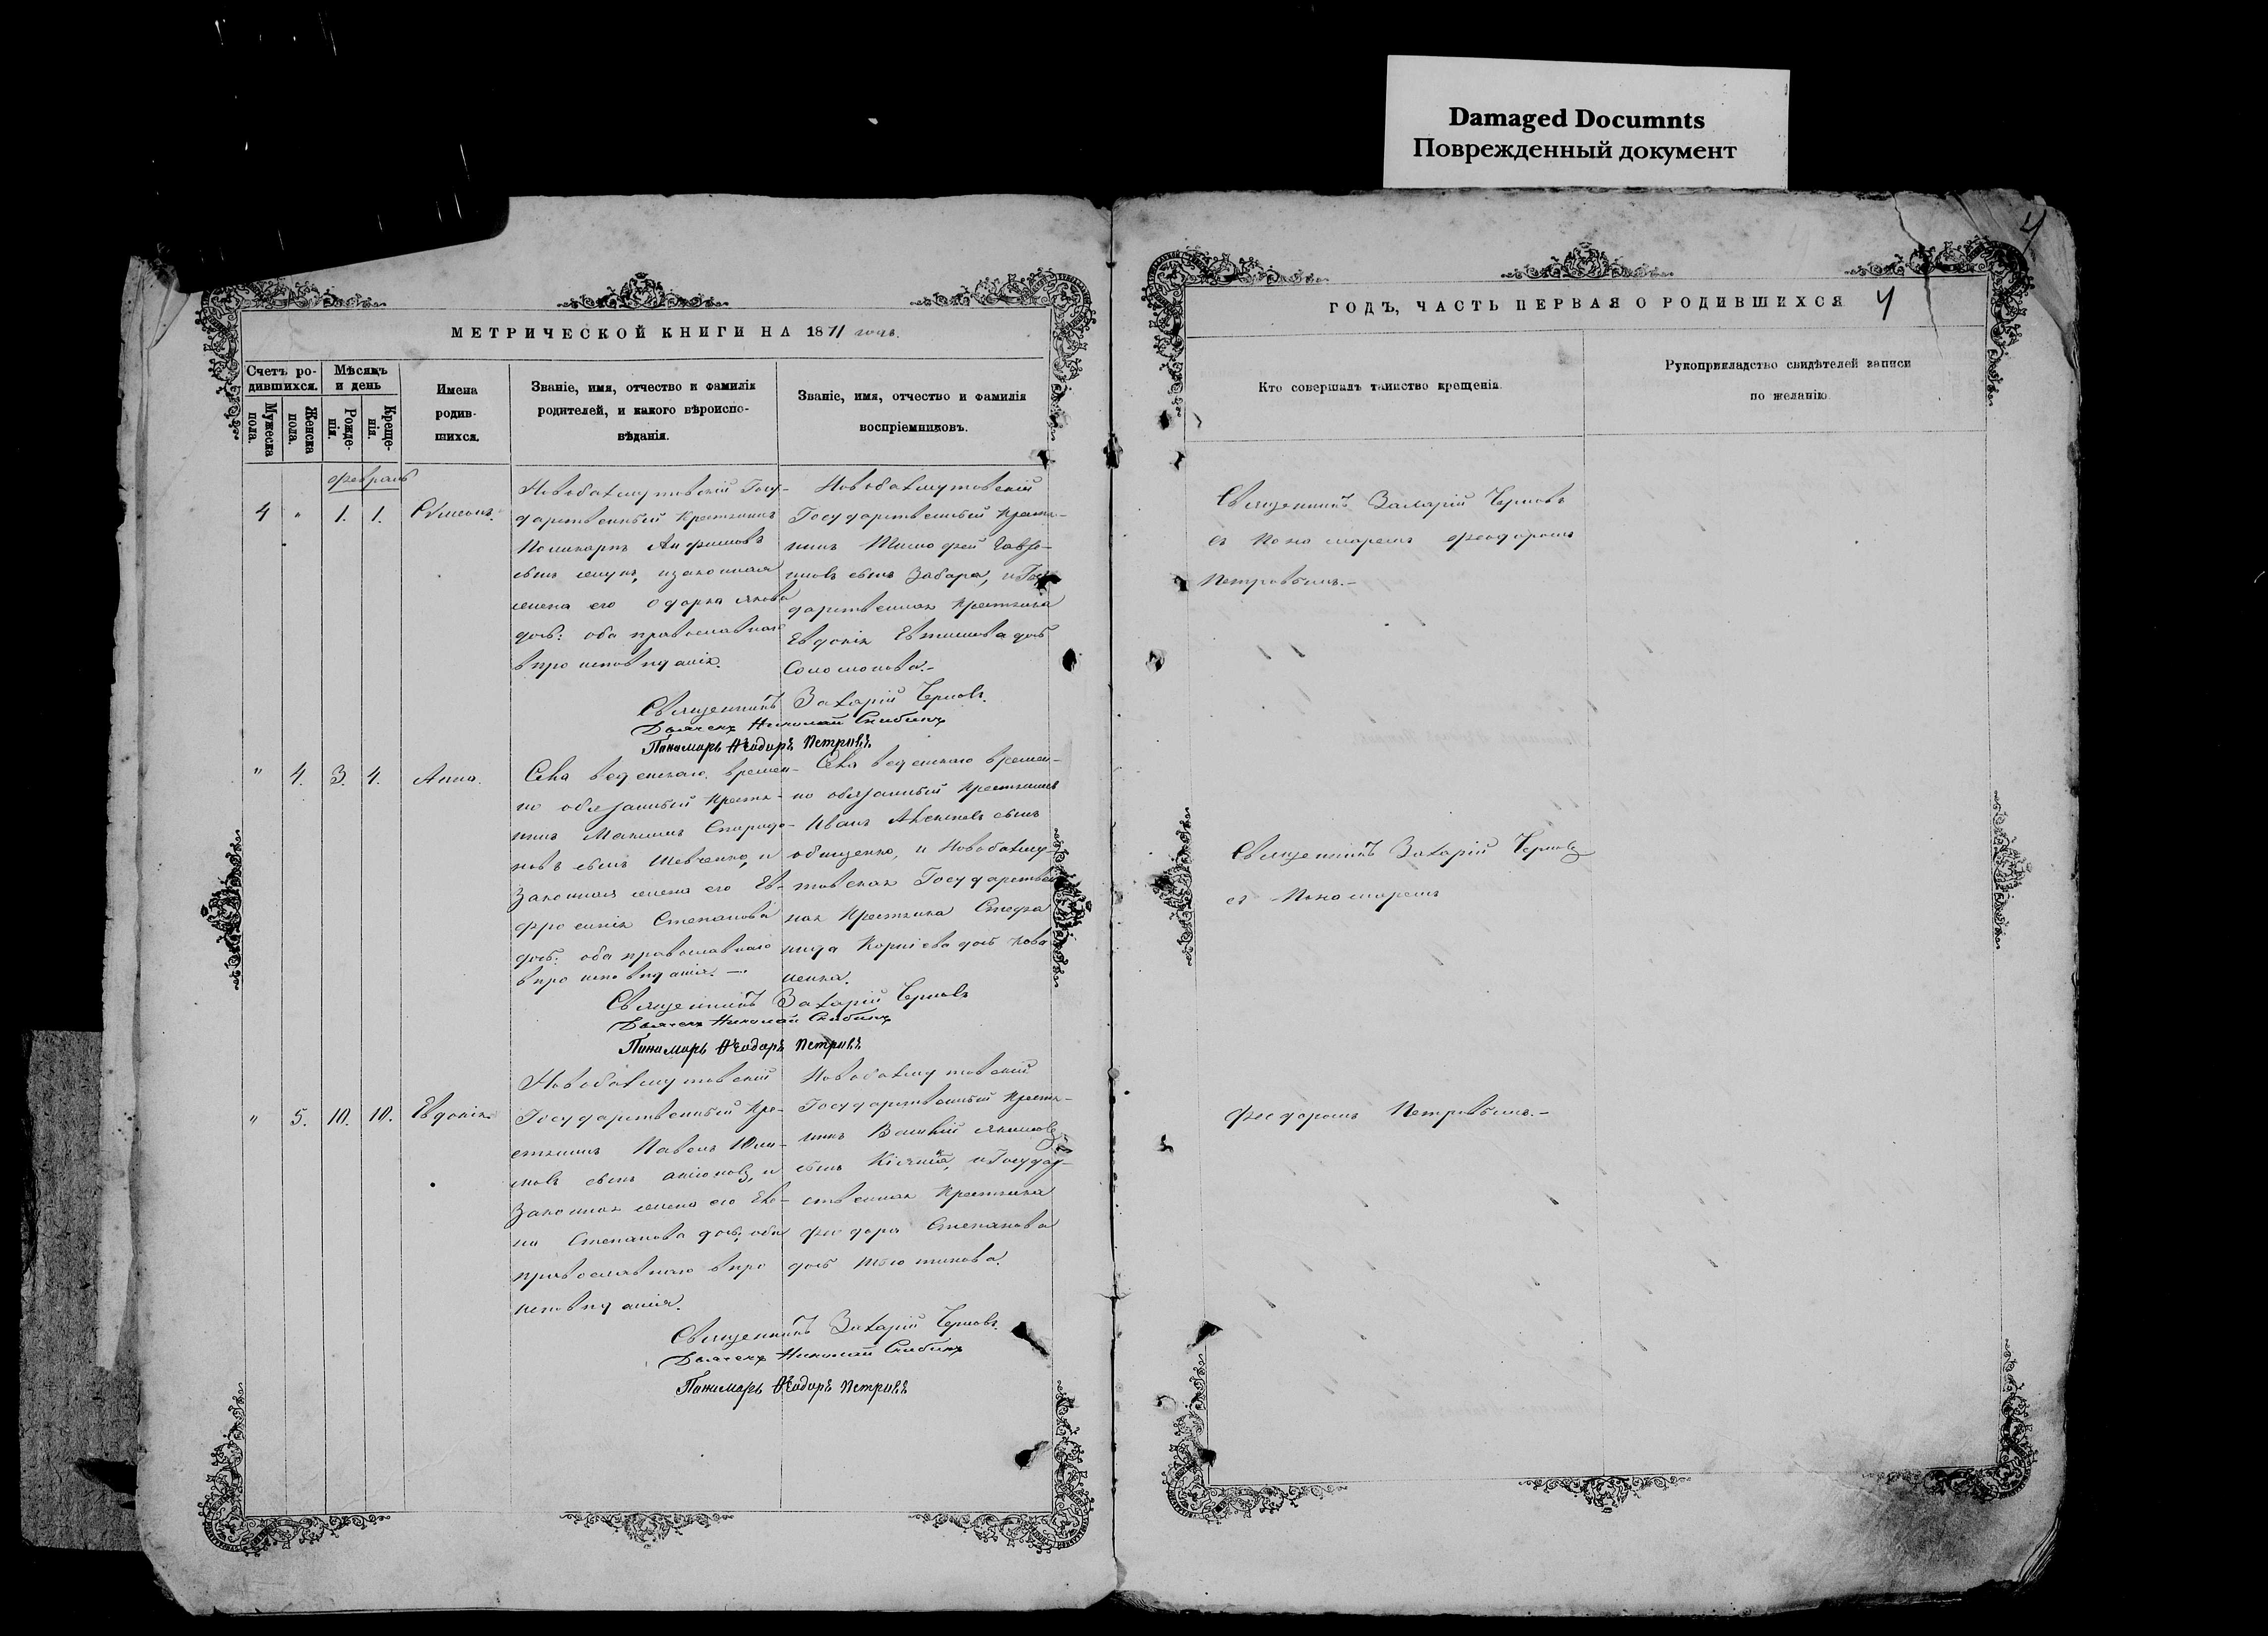 Damaged Documnts
Поврежденный документ
4
МЕТРИЧЕСКОЙ КНИГИ НА 1871 годъ.
Счетъ ро-
дившихся.
Мужеска
пола.
Женска
пола.
Мѣсяцъ
и день
Рожде-
нія.
Креще-
нія.
Имена
родив-
шихся.
Званіе, имя, отчество и фамилія
родителей, и какого вѣроиспо-
вѣданія.
Званіе, имя, отчество и фамилія
воспріемниковъ.
февраль
4 " 1. 1. Сѵмеонъ.
Новобахмутовскій Госу-
дарственный Крестьянинъ
Поликарпъ
сынъ законная
жена его Одарка
доч: оба православнаго
вѣроисповѣданія.
Новобахмутовскій
Государственный Кресть-
янинъ Тимофей
сынъ Забара, и Госу
дарственная Крестьянка
Евдокія Евтимова доч
Соломонова.-
Священникъ Захарій Черновъ.
Дьячекъ Николай Скибинъ
Панамарь Ѳеодоръ Петровъ
" 4. 3. 4. Анна.
Села веденскаго времен-
но обязанный Кресть-
янинъ Максимъ Спиридо-
новъ сынъ Шевченко, и
Законная жена его Ев-
фросинія Степанова
доч: оба православнаго
вѣроисповѣданія.-
Села веденскаго времен-
но обязанный Крестьянинъ
Иванъ сынъ
и Новобахму-
товская Государствен
ная Крестьянка Стефа
нида Корніева доч Кова
ленка.
Священникъ Захарій Черновъ
Дьячекъ Николай Скибинъ
Панамарь Ѳеодоръ Петровъ
" 5. 10. 10. Евдокія.
Новобахмутовскій
Государственный Кре-
стьянинъ Павелъ
сынъ и
Законная жена его Еле-
на Степанова доч, оба
православнаго вѣро
исповѣданія.
Новобахмутовскій
Государственный Кресть-
янинъ Василій Якимовъ
сынъ и Государ-
ственная Крестьянка
Феодора Степанова
доч Тютюнова.
Священникъ Захарій Черновъ.
Дьячекъ Николай Скибинъ
Панамарь Ѳеодоръ Петровъ
ГОДЪ, ЧАСТЬ ПЕРВАЯ О РОДИВШИХСЯ 4
Кто совершалъ таинство крещенія.
Рукоприкладство свидѣтелей записи
по желанію.
Священникъ Захарій Черновъ
съ Пономаремъ Феодоромъ
Петровымъ.-
Священникъ Захарій Черновъ
съ Пономаремъ
Феодоромъ Петровымъ.-